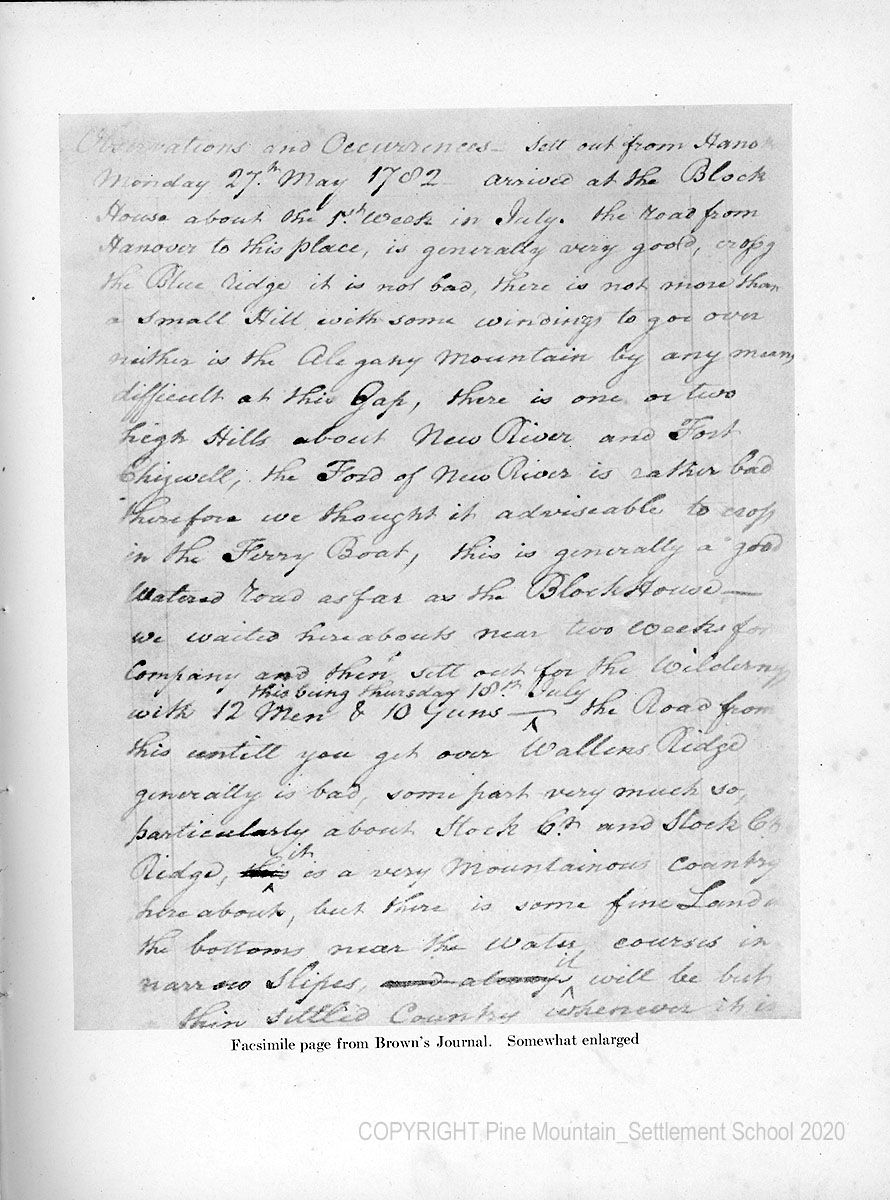 Observations and Occurrences — Sett out from Hano
Monday 27.th May 1782 — arrived at the Block
House about the 1st. Week in July. the road from
Hanover to this place, is generally very good, crossg
the Blue ridge it is not bad, there is not more than
a small Hill with some windings to goe over
neither is the Alegany Mountain by any means
difficult at this Gap, there is one or two
high Hills about New River and Fort
Chizwell, the Ford of New River is rather bad
therefore we thought it adviseable to cross
in the Ferry Boat, this is generally a good
Watered road as far as the Block House —
we waited hereabouts near two weeks for
Company and then sett out for the Wilderness
this being thursday 18th July
with 12 Men & 10 Guns — ^ the Road from
this untill you get over Wallens Ridge
generally is bad, some part very much so,
particularly about Stock Ck and Stock Ck
it
Ridge, this ^ is a very Mountainous Country
hereabout, but there is some fine Land in
the bottoms near the Water courses in
narrow Slipes, and always
it
^ will be but
thin settled Country whenever it is
Facsimile page from Brown's Journal. Somewhat enlarged
COPYRIGHT Pine Mountain_Settlement School 2020